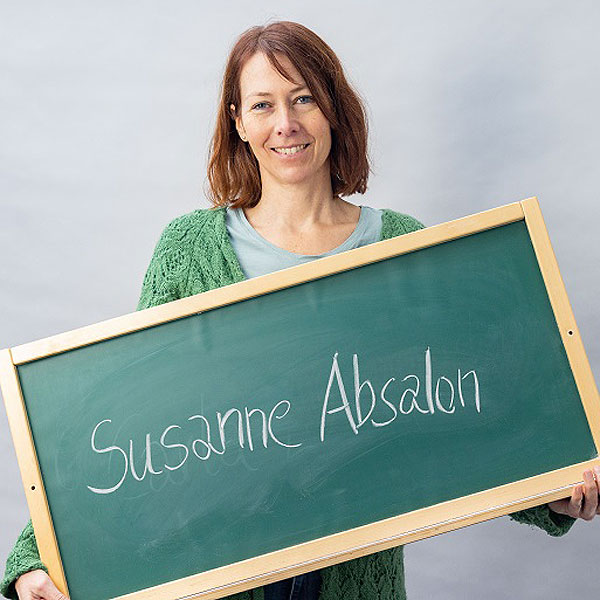 Susanne Absalon